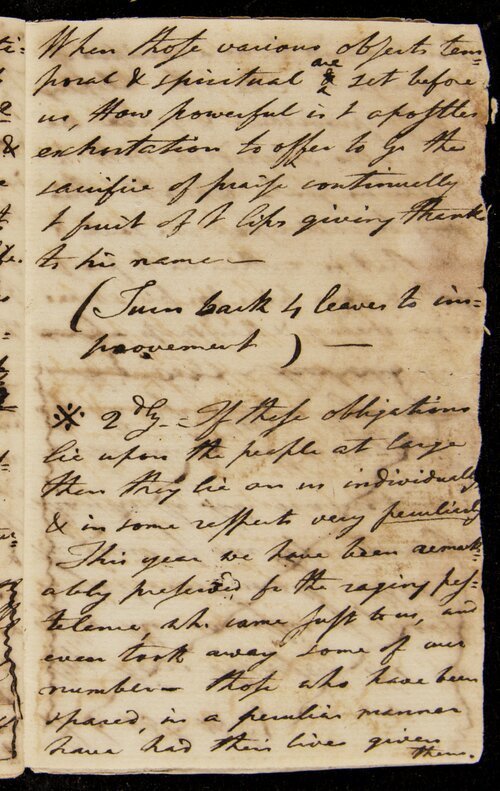 When those various objects tem=
poral & spiritual are set before
us, How powerful is t apostles
exhortation to offer to G the
sacrifice of praise continually
t fruit of t lips giving thank
to his name —
(Turn back 4 leaves to im=
provement) —
※ 2dly = If these obligations
lie upon the people at large
then they lie on us individually
& in some respects very peculiarly
This year we have been remark=
ably preserved fr the raging pes=
tilence, wh. came just to us, and
even took away some of our
number — those who have been
spared, in a peculiar manner
have had their lives given
them.